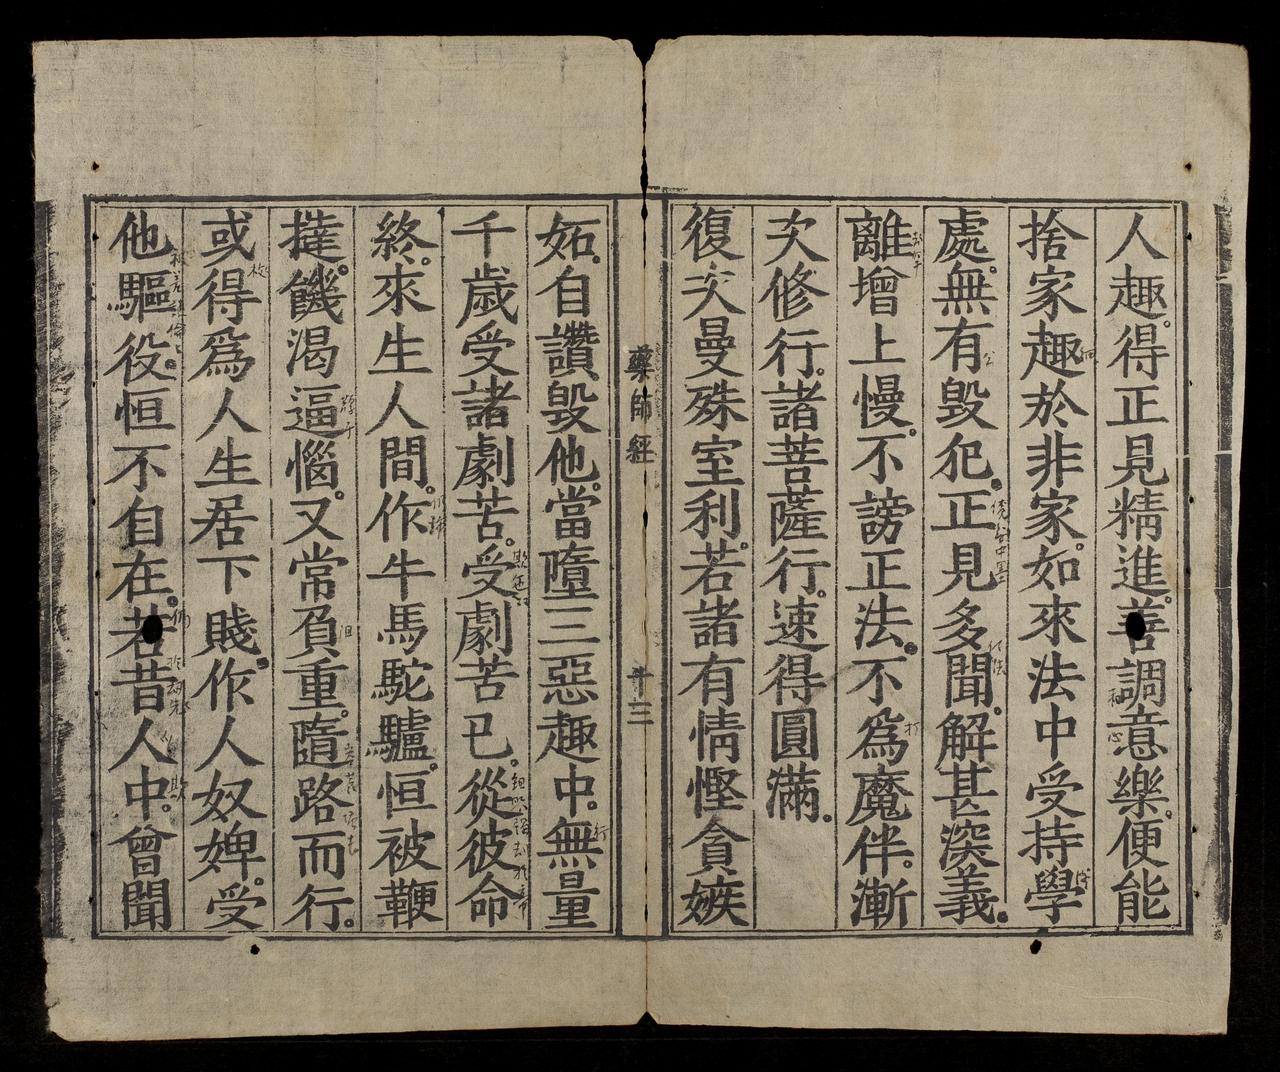 人趣。得正見精進。善調意樂。便能
捨家趣於非家。如來法中受持學
處。無有毀犯。正見多聞。解甚深義。
離增上慢。不謗正法。不為魔伴。漸
次修行。諸菩薩行。速得圓滿。
復次曼殊室利。若諸有情慳貪嫉
藥師經
十三
妬。自讚毀他。當墮三惡趣中。無量
千歲受諸劇苦。受劇苦已。從彼命
終。來生人間。作牛馬駝驢。恒被鞭
撻。饑渴逼惱。又常負重。隨路而行。
或得為人生居下賤。作人奴婢。受
他驅役。恒不自在。若昔人中。曾聞